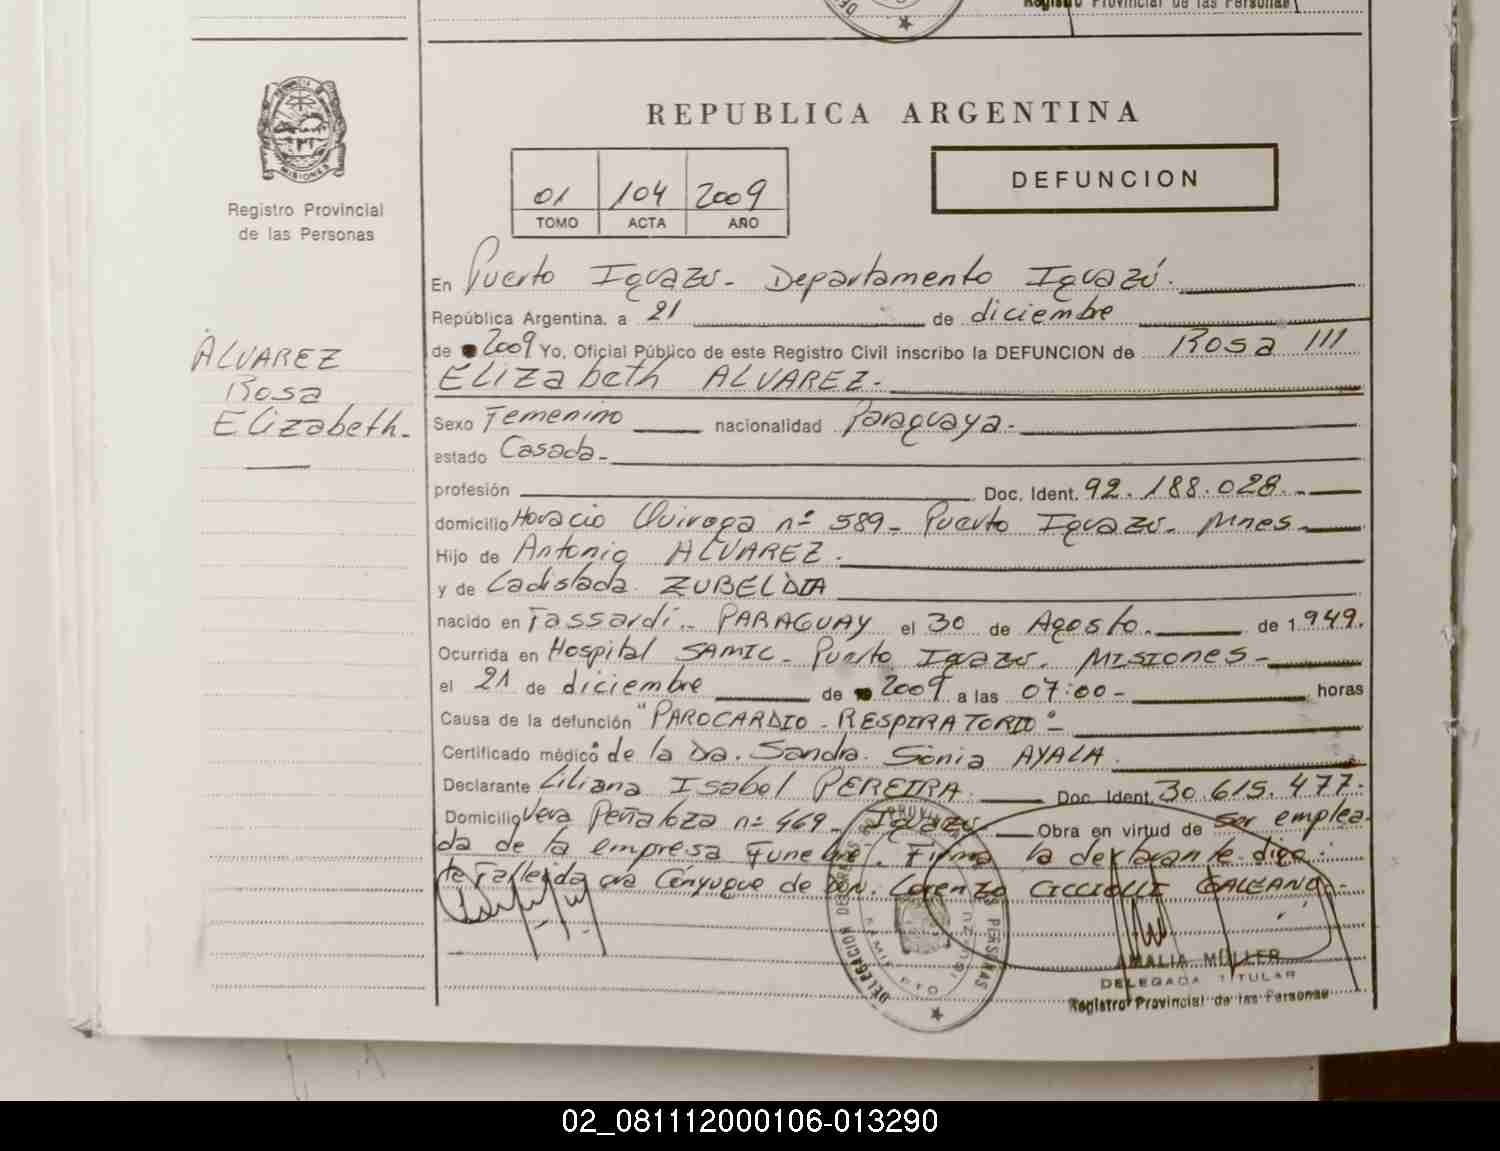 Registro Provincial de las Personas
PROVINCIA DE
MISIONES
Registro Provincial
de las Personas
REPUBLICA ARGENTINA
01 104 2009
TOMO ACTA AÑO
DEFUNCION
ALVAREZ
Rosa
Elizabeth.
En Puerto Iguazu. Departamento Iguazú.
República Argentina, a 21 de diciembre
de 2009 Yo, Oficial Público de este Registro Civil inscribo la DEFUNCION de Rosa ///
Elizabeth ALVAREZ.
Sexo Femenino nacionalidad Paraguaya.
estado Casada.
profesión Doc. Ident. 92.188.028.
domicilio Horacio Quiroga nº 589. Puerto Iguazu. Mnes.
Hijo de Antonio ALVAREZ.
y de Ladislada ZUBELDIA
nacido en Fassardi. PARAGUAY el 30 de Agosto. de 1.949.
Ocurrida en Hospital SAMIC. Puerto Iguazu. MISIONES.
el 21 de diciembre de 2009 a las 07:00 horas
Causa de la defunción "PAROCARDIO-RESPIRATORIO"
Certificado médico de la Da. Sandra Sonia AYALA.
Declarante Liliana Isabel PEREIRA. Doc. Ident. 30.615.477.
Domicilio Vera Peñaloza nº 469. Iguazu Obra en virtud de ser emplea-
da de la empresa Funebre. Firma la declarante. digo:
te Fallecida era Cónyugue de Don. Lorenzo CICCIOLLI GALEANO.
DELEGACION DE LAS PERSONAS
AMALIA MÜLLER
DELEGADA TITULAR
Registro Provincial de las Personas
02_081112000106-013290